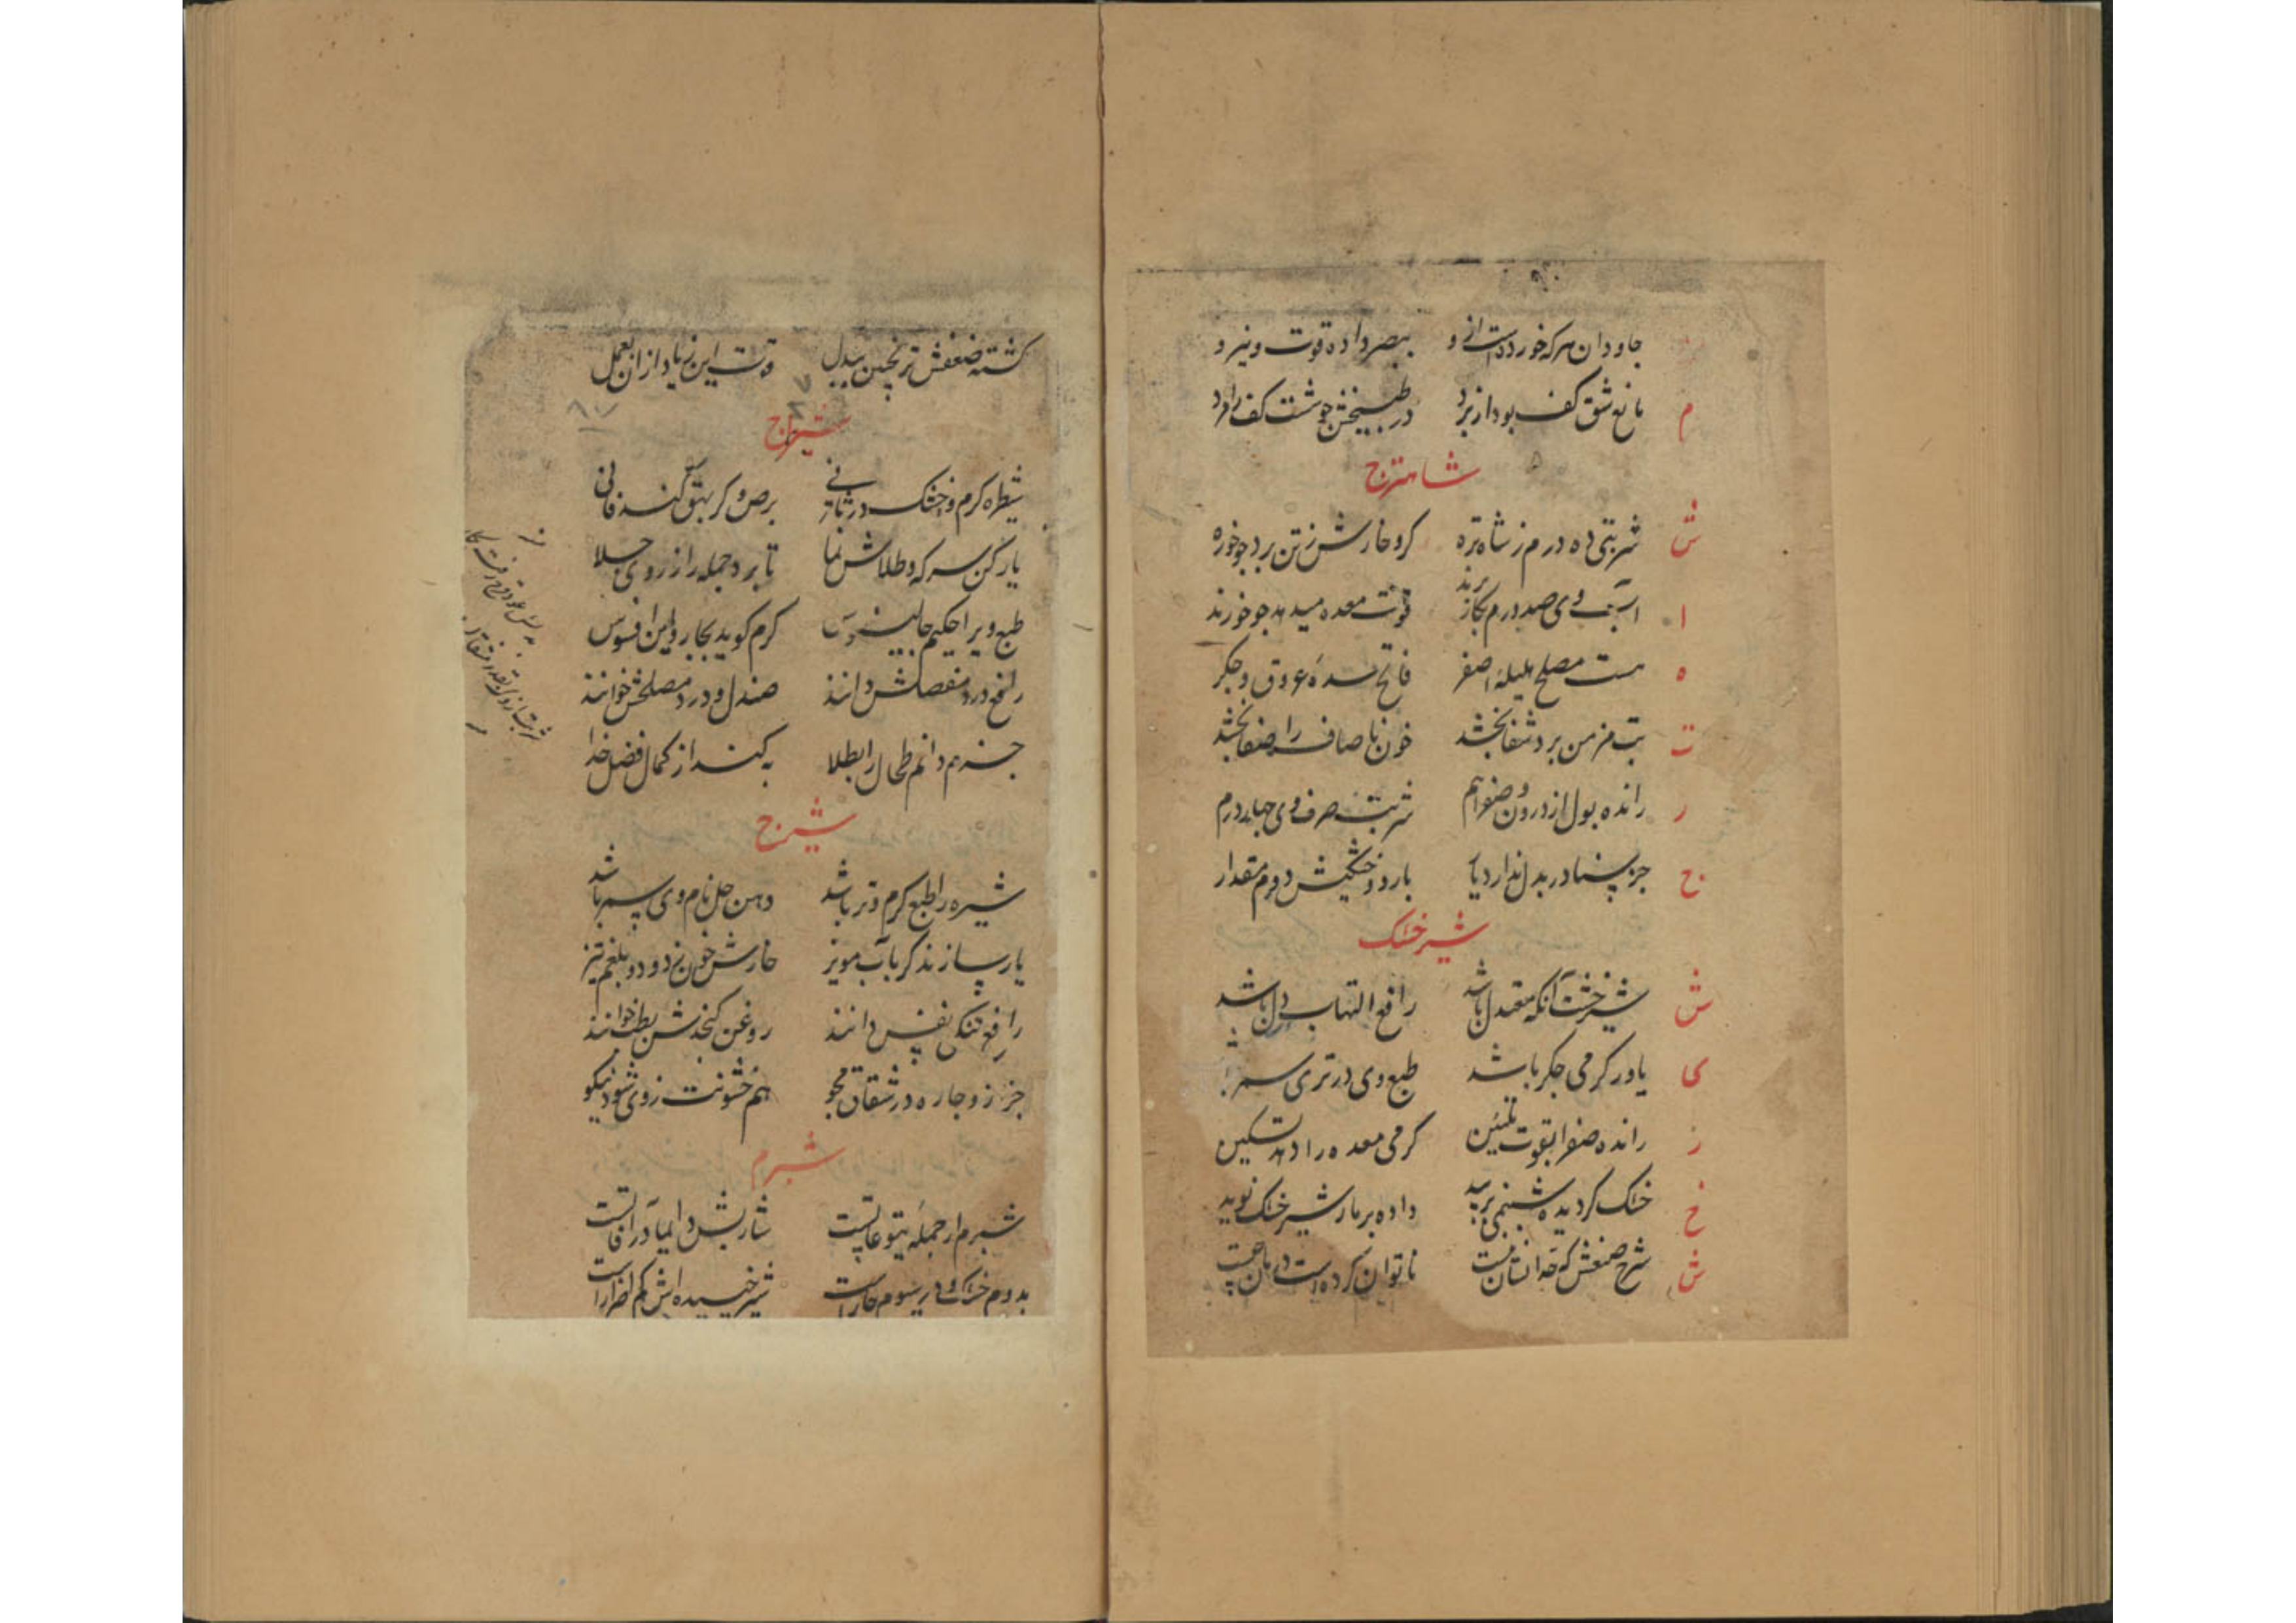 جاودان هر که خورده است از و ببصر داده قوت و نیرو
م مانع شق کف بود از برد در طبیخش چو شست کف را مرد
شاهترج
ش شربتی ده درم ز شاه تره کر و خارش ز تن برد چو خوره
ا آب وی صد درم بکار برند قوت معده میدهد چو خورند
ه هست مصلح هلیله اصفر فاتح سده عروق و جکر
ت تب مزمن برد شفا بخشد خون ناصاف را صفا بخشد
ر رانده بول از درون و صفرا هم شربت صرف وی چهار درم
ج جز سنا در بدل ندارد یار بارد و خشکیش دوم مقدار
شیرخشک
ش شیرخشت آنکه معتدل باشد رافع التهاب دل باشد
ی یاور کرمی جکر باشد طبع وی در تری سمر باشد
ر رانده صفرا بقوت تلیین کرمی معده را دهد تسکین
خ خشک کردیده شبنمی بر بید داده بر ما ز شیر خشک نوید
ش شرح صنعش که خدا نشان منست ناتوان کرده است
کشته ضعفش ترنجبین ببدل قوت این زیاد از ان بعمل
شیترج
شیطره کرم و خشک در ثانی برص و کر بهق کند فانی
یار کن سرکه و طلاش نما تا برد جمله را ز روی جلا
طبع ویرا حکیم جالینوس کرم کوید بچار و این افسوس
رافع درد مفصلش دانند صندل و درد مصلحش خوانند
جزم دانم طحال را بطلا به کند از کمال فضل خدا
شیرج
شیره را طبع کرم و تر باشد دهن حل نام وی بسر باشد
یار سازند کر باب مویز خارش خون زدود و بلغم تیز
رافع تنکی نفس دانند روغن کنجدش بطب خوانند
جز ز و چاره در شقاق مجو هم خشونت ز وی شود نیکو
شبرم
شبرم از جمله یتوعاتست شاربش دایما در افاتست
بدوم خشک و در سوم حار است شیر خیسیده اش کم اضرار است